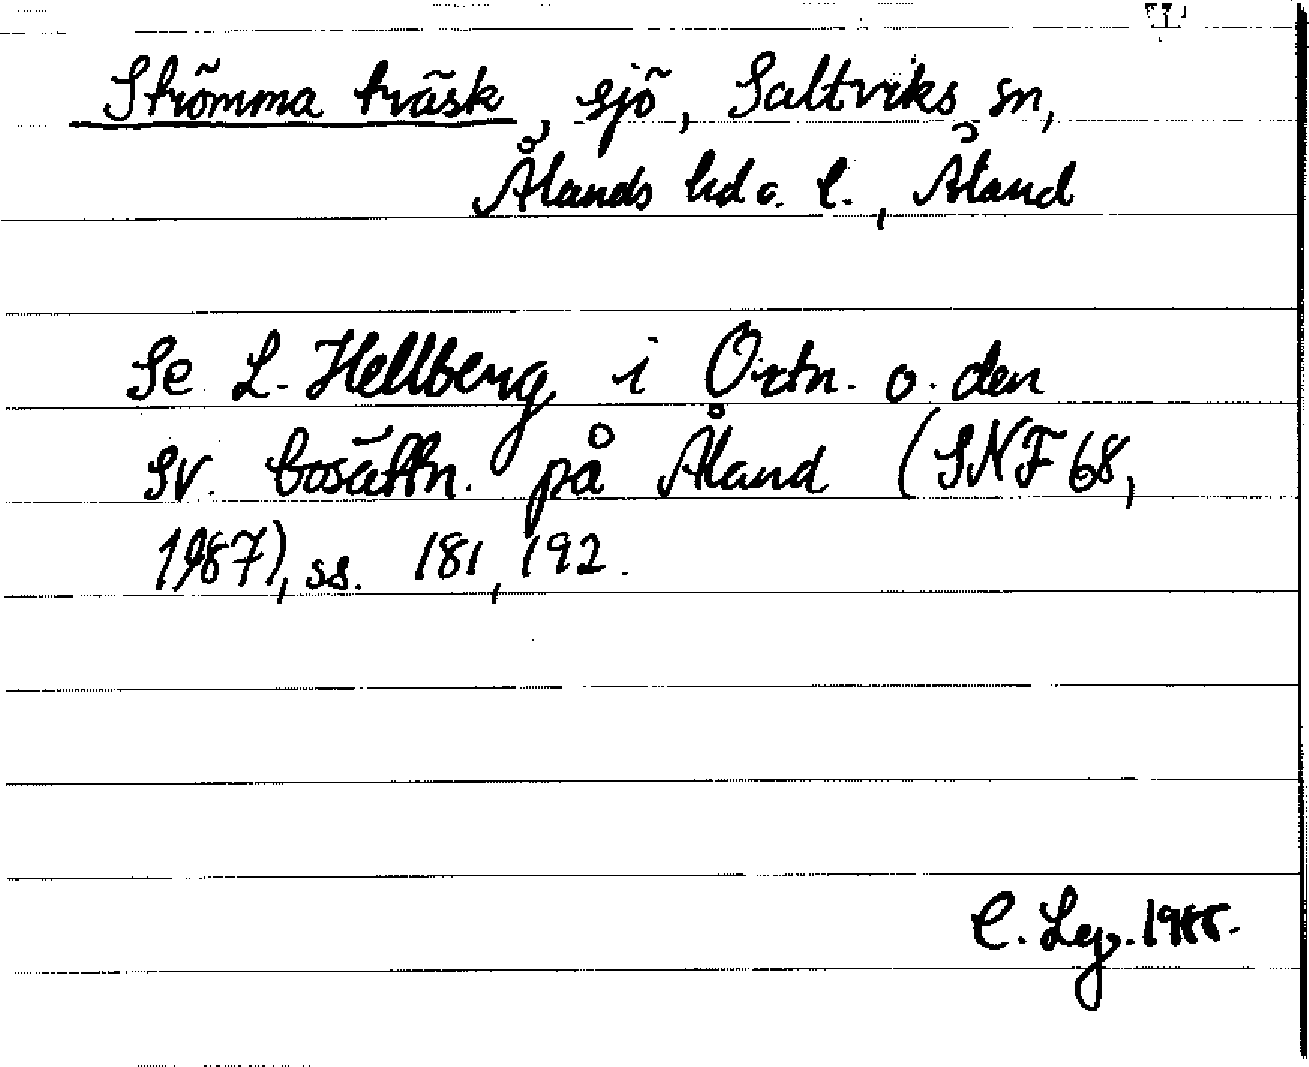 Strömma träsk, sjö, Saltviks sn,
Ålands hd o. l., Åland
Se L. Hellberg i Ortn. o. den
sv. bosättn. på Åland (SNF 68,
1987), ss. 181, 192.